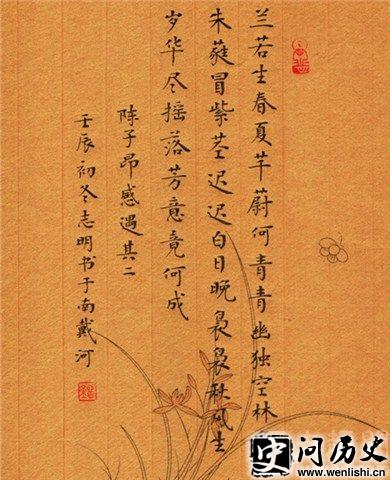 兰若生春夏芊蔚何青青幽独空林
朱蕤冒紫茎迟迟白日晚袅袅秋风生
岁华尽摇落芳意竟何成
陈子昂感遇其二
壬辰初冬志明书于南戴河
史
问历史
www.wenlishi.cn